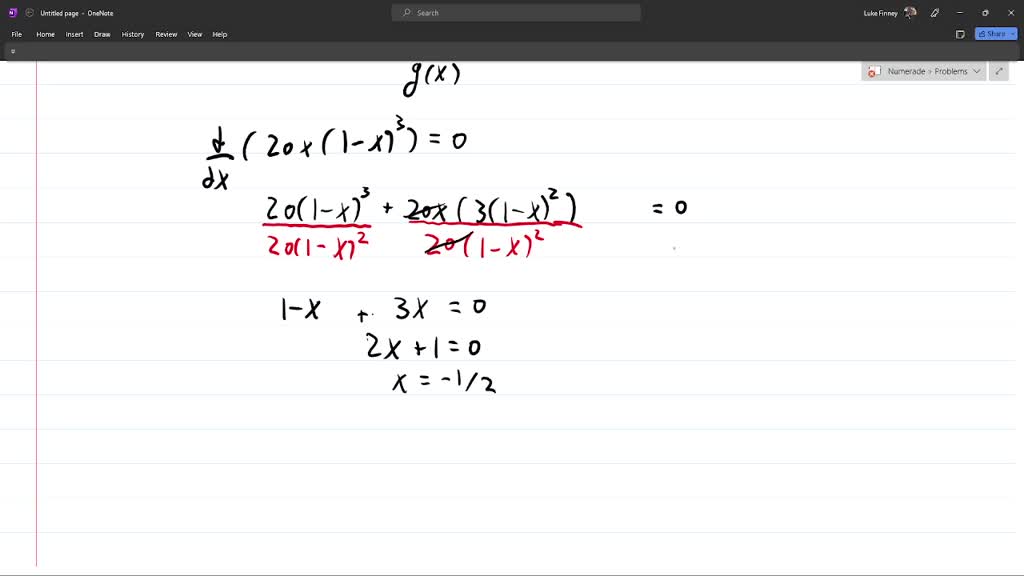 Untitled page - OneNote
Search
Luke Finney
File Home Insert Draw History Review View Help
Share
Numerade > Problems
g(x)
d/dx (20x(1-x)^3) = 0
20(1-x)^3 + 20x(3(1-x)^2) = 0
20(1-x)^2 20(1-x)^2
1-x + 3x = 0
2x + 1 = 0
x = -1/2